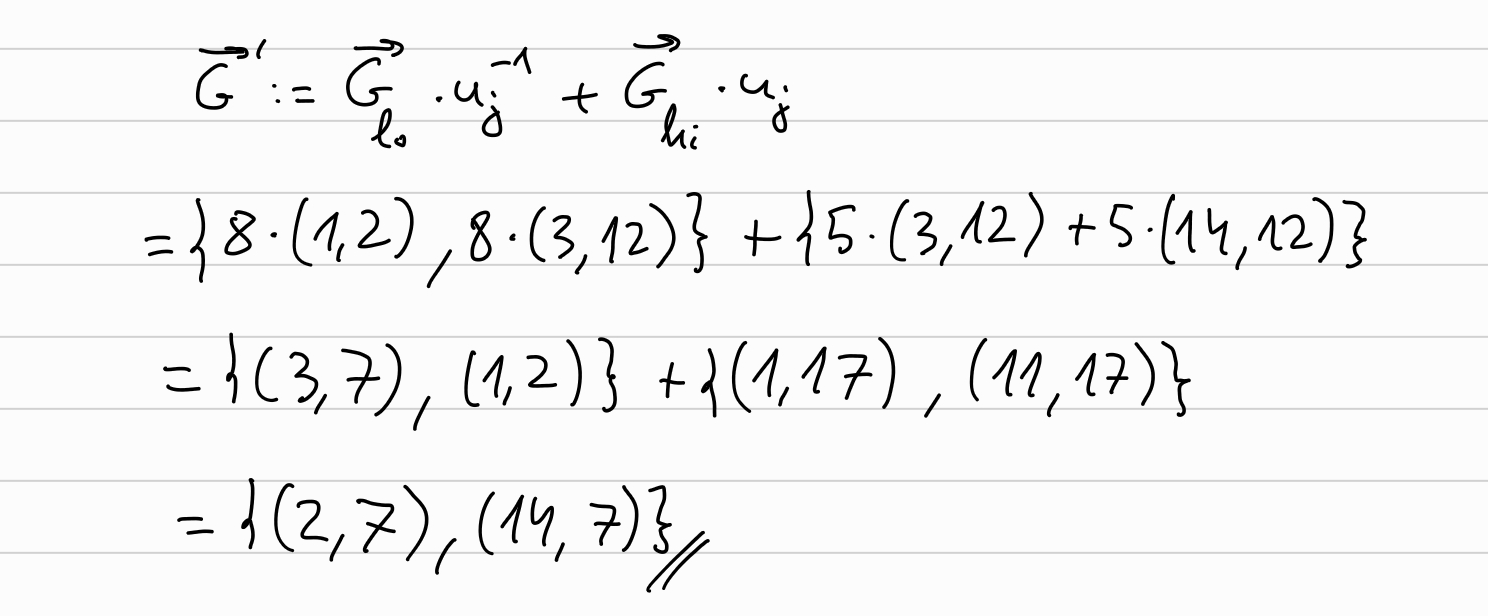 G⃗' := G⃗_lo · u_j^-1 + G⃗_hi · u_j
= {8·(1,2), 8·(3,12)} + {5·(3,12) + 5·(14,12)}
= {(3,7), (1,2)} + {(1,17), (11,17)}
= {(2,7), (14,7)}